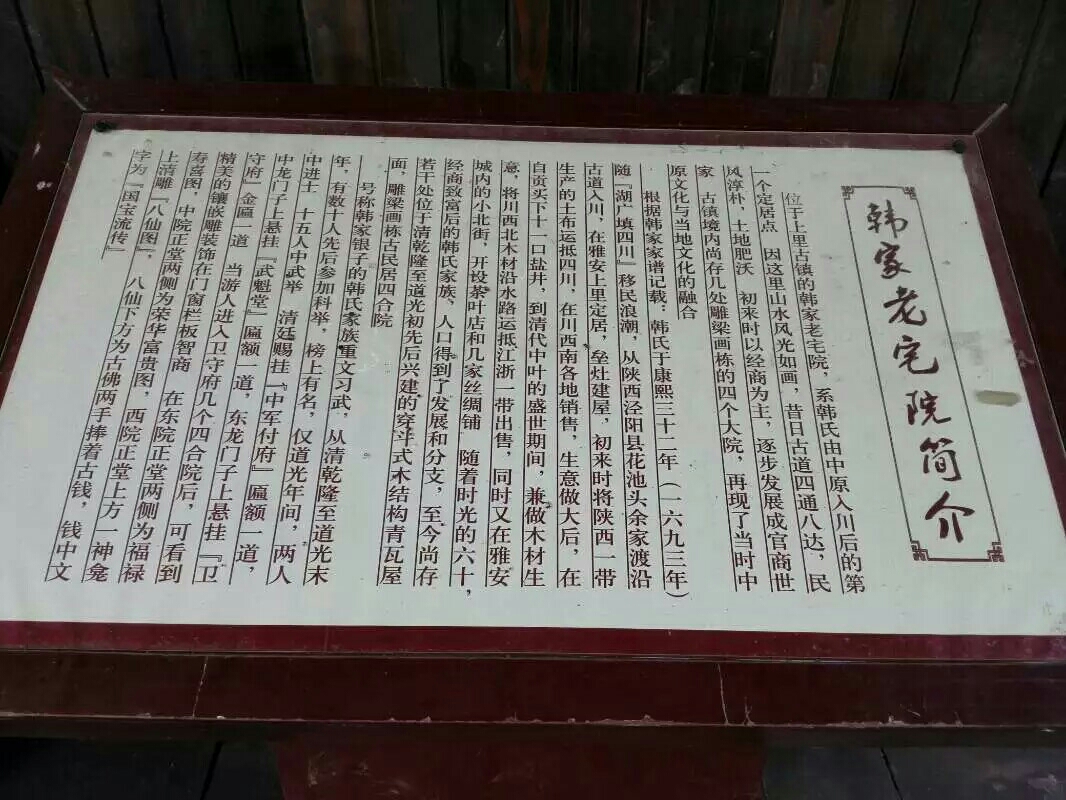 韩家老宅院简介
位于上里古镇的韩家老宅院，系韩氏由中原入川后的第
一个定居点 因这里山水风光如画，昔日古道四通八达，民
风淳朴，土地肥沃 初来时以经商为主，逐步发展成官商世
家 古镇境内尚存几处雕梁画栋的四个大院，再现了当时中
原文化与当地文化的融合
根据韩家家谱记载：韩氏于康熙三十二年（一六九三年）
随『湖广填四川』移民浪潮，从陕西泾阳县花池头余家渡沿
古道入川，在雅安上里定居，垒灶建屋，初来时将陕西一带
生产的土布运抵四川，在川西南各地销售，生意做大后，在
自贡买下十一口盐井，到清代中叶的盛世期间，兼做木材生
意，将川西北木材沿水路运抵江浙一带出售，同时又在雅安
城内的小北街，开设茶叶店和几家丝绸铺 随着时光的六十，
经商致富后的韩氏家族，人口得到了发展和分支，至今尚存
若干处位于清乾隆至道光初先后兴建的穿斗式木结构青瓦屋
面，雕梁画栋古民居四合院
号称韩家银子的韩氏家族重文习武，从清乾隆至道光末
年，有数十人先后参加科举，榜上有名，仅道光年间，两人
中进士 十五人中武举 清廷赐挂『中军付府』匾额一道，
中龙门子上悬挂『武魁堂』匾额一道，东龙门子上悬挂『卫
守府』金匾一道 当游人进入卫守府几个四合院后，可看到
精美的镶嵌雕装饰在门窗栏板智商 在东院正堂两侧为福禄
寿喜图，中院正堂两侧为荣华富贵图，西院正堂上方一神龛
上清雕『八仙图』，八仙下方为古佛两手捧着古钱，钱中文
字为『国宝流传』